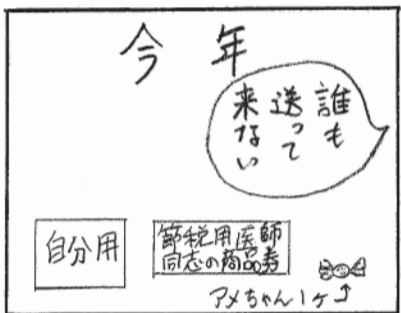 今年
誰も
送って
来ない
自分用
節税用医師
同志の商品券
アメちゃん1ヶ